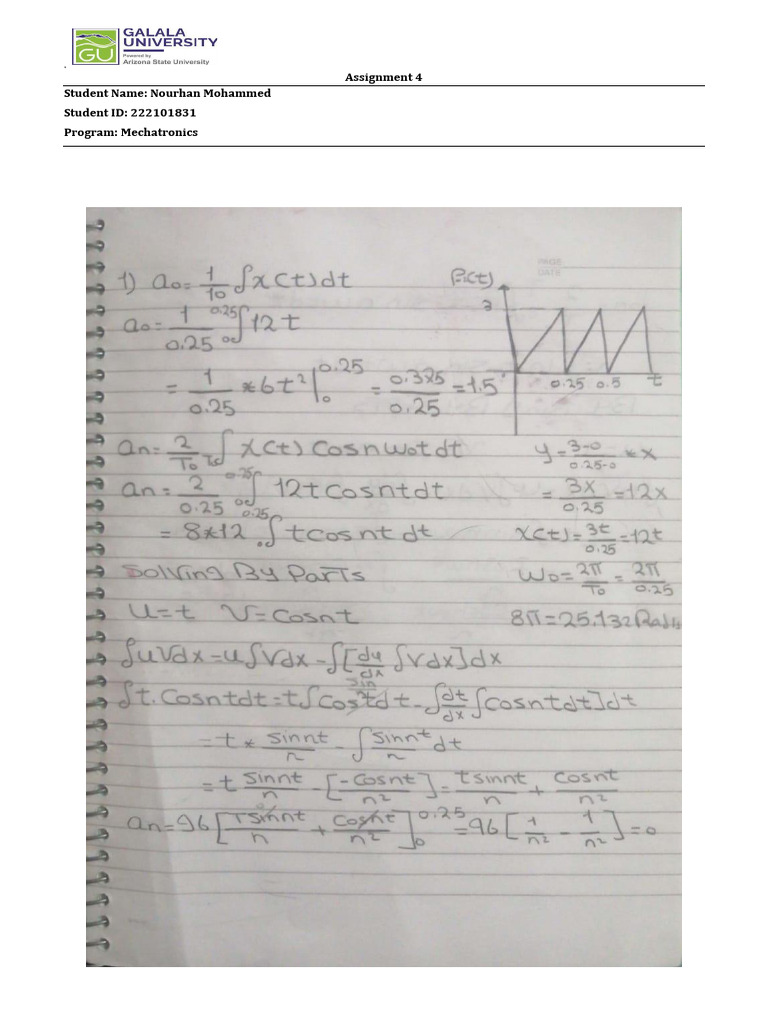 GALALA
UNIVERSITY
GU
Powered by
Arizona State University
Assignment 4
Student Name: Nourhan Mohammed
Student ID: 222101831
Program: Mechatronics
PAGE
DATE
1) a₀ = 1/10 ∫ x(t) dt
a₀ = 1/0.25 ₀∫^0.25 12t
= 1/0.25 * 6t² |₀^0.25 = 0.375/0.25 = 1.5
3
0.25 0.5 t
an = 2/T₀ ∫T₀ x(t) Cosnw₀t dt
y = 3-0/0.25-0 * x
an = 2/0.25 ₀∫^0.25 12t Cosnt dt
= 3x/0.25 = 12x
= 8*12 ₀∫^0.25 t cosnt dt
x(t) = 3t/0.25 = 12t
Solving By Parts
W₀ = 2π/T₀ = 2π/0.25
U = t V = Cosnt
8π = 25.132 Rad/s
∫uVdx = u∫Vdx - ∫[du/dx ∫Vdx]dx
∫t.Cosntdt = t∫Cosntdt - ∫dt/dx ∫Cosntdt]dt
= t * sinnt/n - ∫ sinnt/n dt
= t sinnt/n - [-Cosnt/n²] = tsinnt/n + cosnt/n²
an = 96 [Tsinnt/n + Cosnt/n²]₀^0.25 = 96 [1/n² - 1/n²] = 0